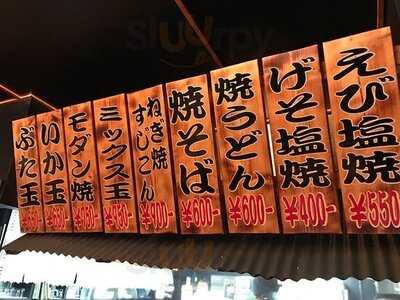 えび塩焼
¥550
げそ塩焼
¥400-
焼うどん
¥600-
焼そば
¥600-
ねぎ焼
すじこん
ミックス玉
モダン焼
いか玉
ぶた玉